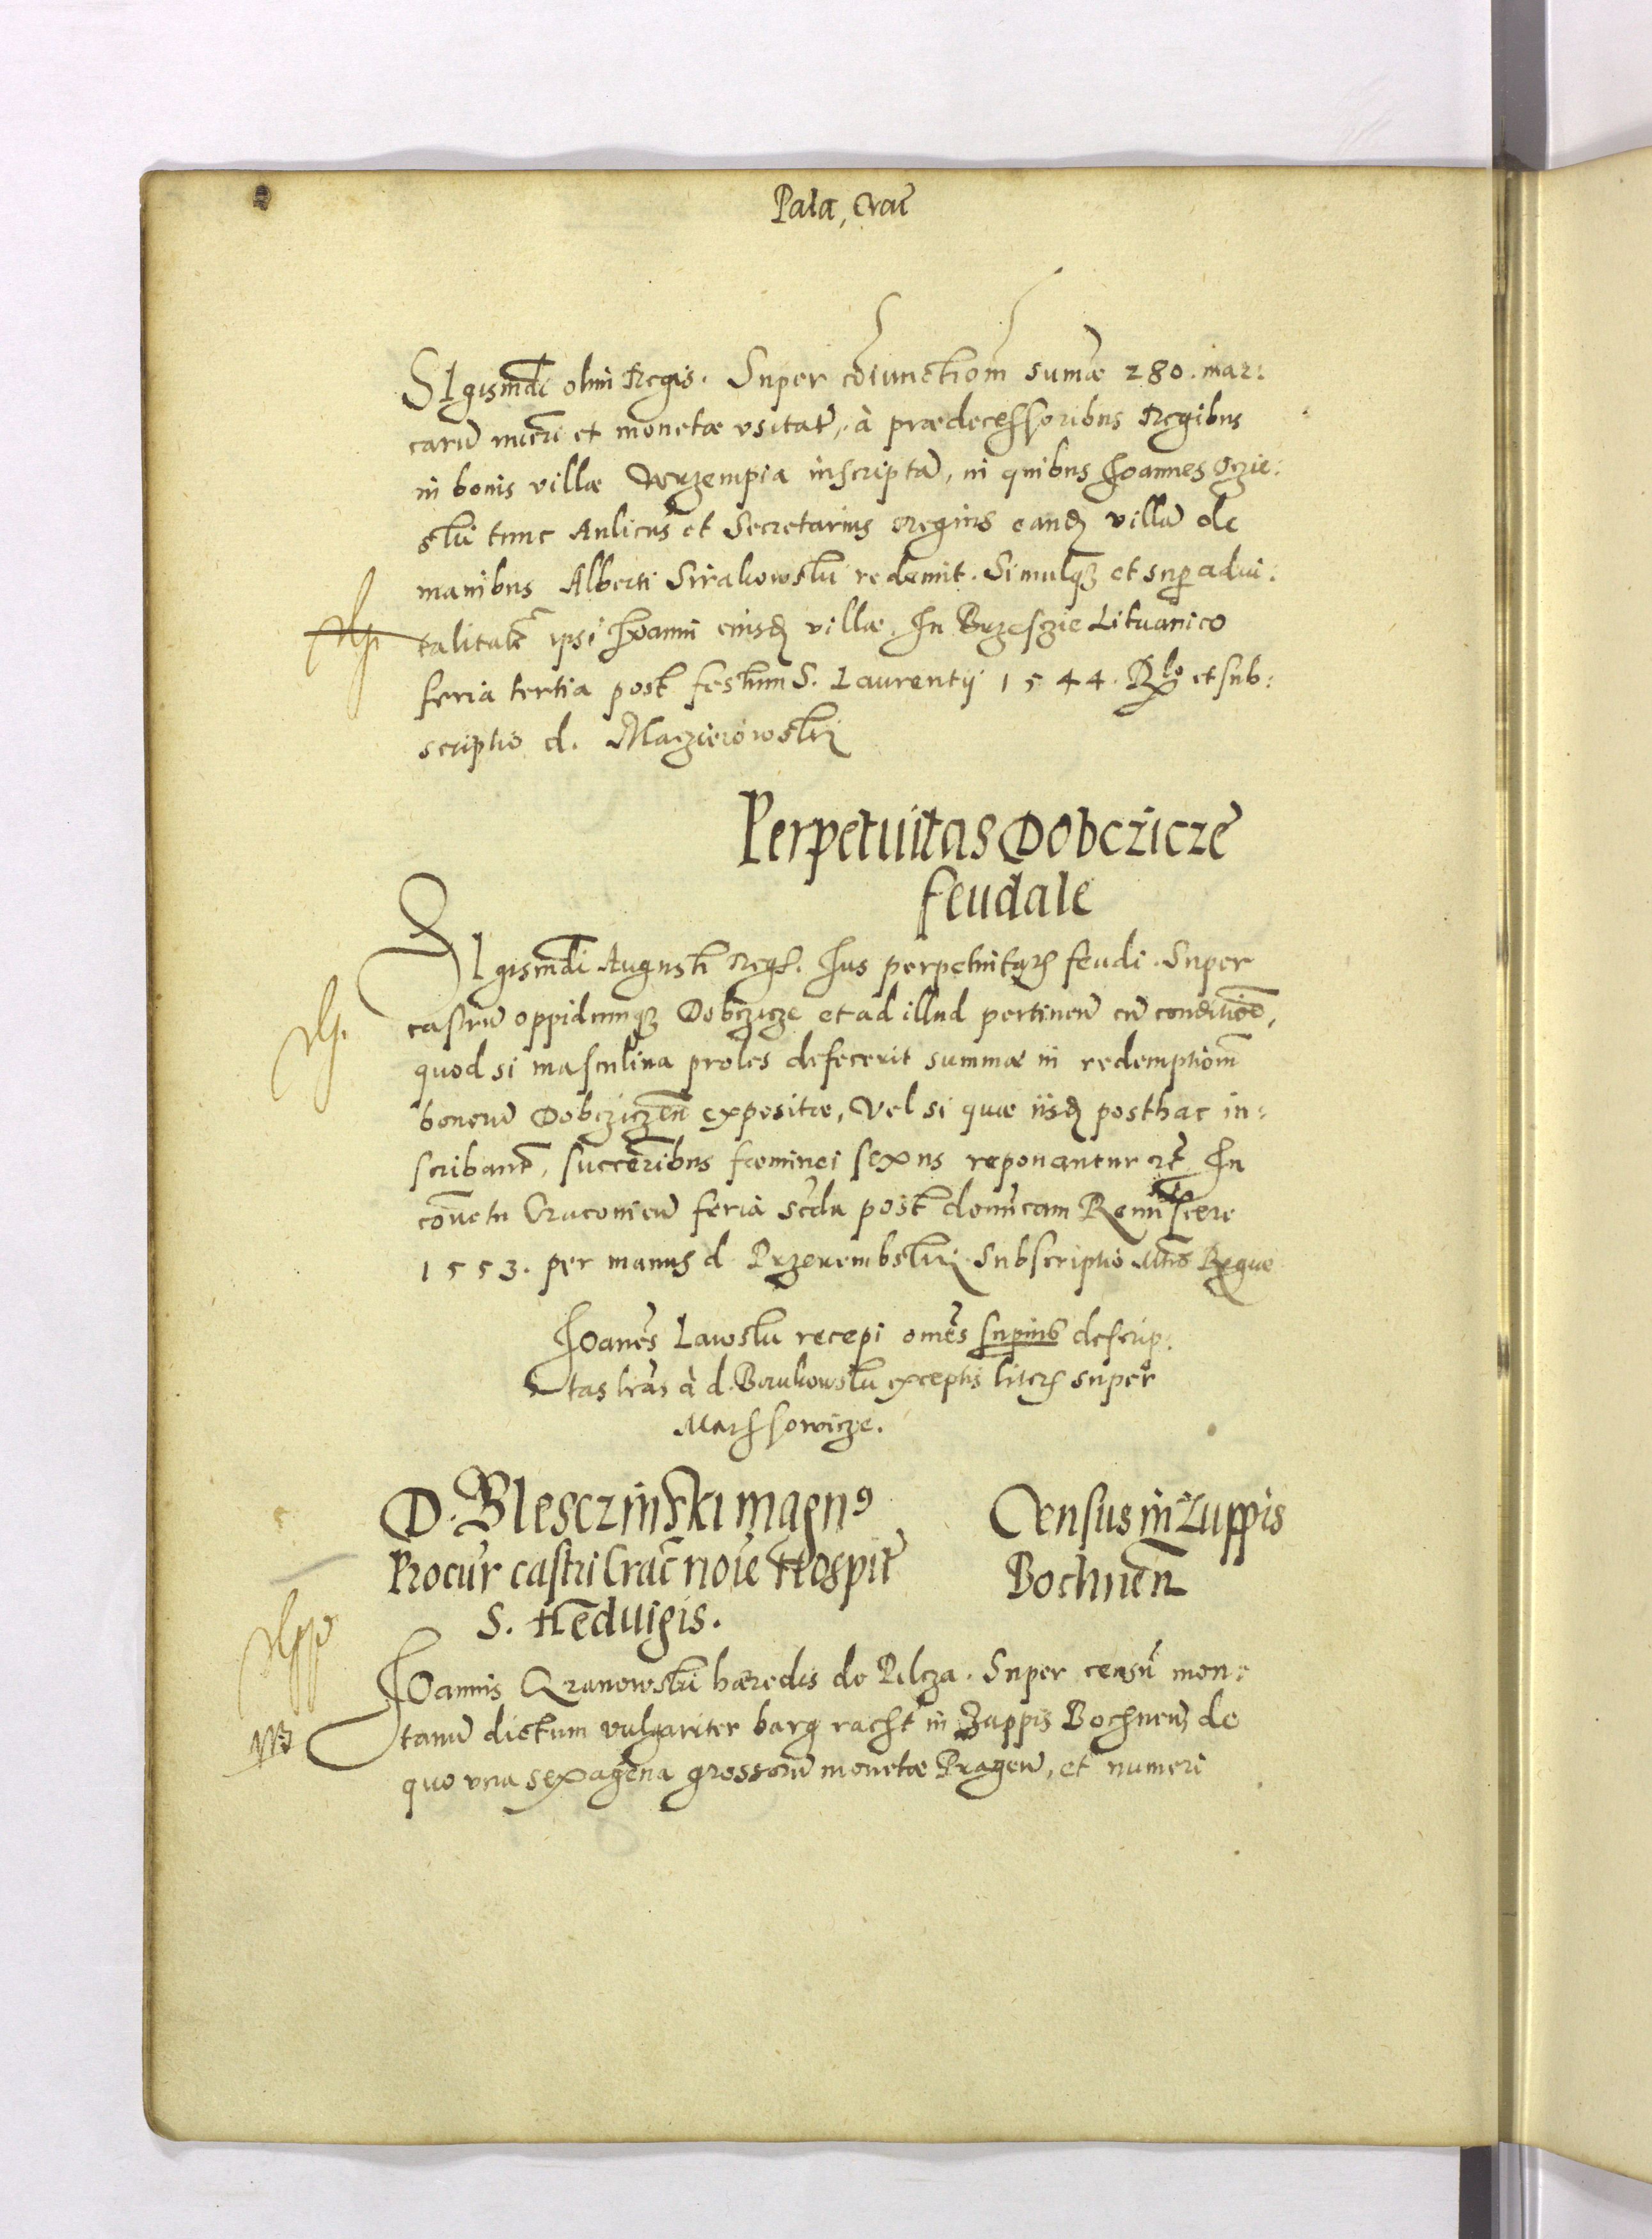 Pala, Crac̄
SIgismd̄i olim Regis. Super cōiunctiom̄ sum̄æ 280. mar:
carū nūeri et monetæ vsitat̄, à prædecessoribus Regibus
in bonis villæ Wrzempia inscriptā, in quibus Ioannes Oczie:
ski tunc Aulicus et Secretarius Regius eandȝ villā de
manibus Alberti Sirakowski redemit. Simulqȝ et sup̱ advi:
talitat̄e ipsi Ioanni eiusdȝ villæ. In Brzesczie Lituanico
feria tertia post festum S. Laurentij 1544. Rlō et sub:
scriptio d. Macziejowskij
Perpetuitas Dobczicze
feudale
SIgismd̄i Augusti Regs. Ius perpetuitatis feudi. Super
castrū oppidumqȝ Dobczicze et ad illud pertinen̄ cū conditiōe,
quod si masculina proles defecerit summæ in redemptiom̄
bonorū Dobcziczen̄ expositæ, Vel si quæ iisdȝ posthac in:
scribant̄, successoribus fœminei sexus reponantur etc̄ In
cōuetu Cracoviēn feria scd̄a post domīcam Reminiscere
1553. per manus d. Przerembskij Subscriptio Mtis Regiæ
Ioanēs Lawski recepi omēs superius descrip:
tas lrās à d. Borukowski exceptis literis super
Marssowicze.
D. Blesczinski magnꝰ
Procur̄ castri Crac̄ noīe Hospit̄
S. Hedvigis.
Census in Zuppis
Bochnen̄
IOannis Granowski hæredis de Pilcza. Super censū mon:
tanū dictum vulgariter barg racht in Zuppis Bochnen̄ de
quo vna sexagena grossorū monetæ Pragen̄, et numeri